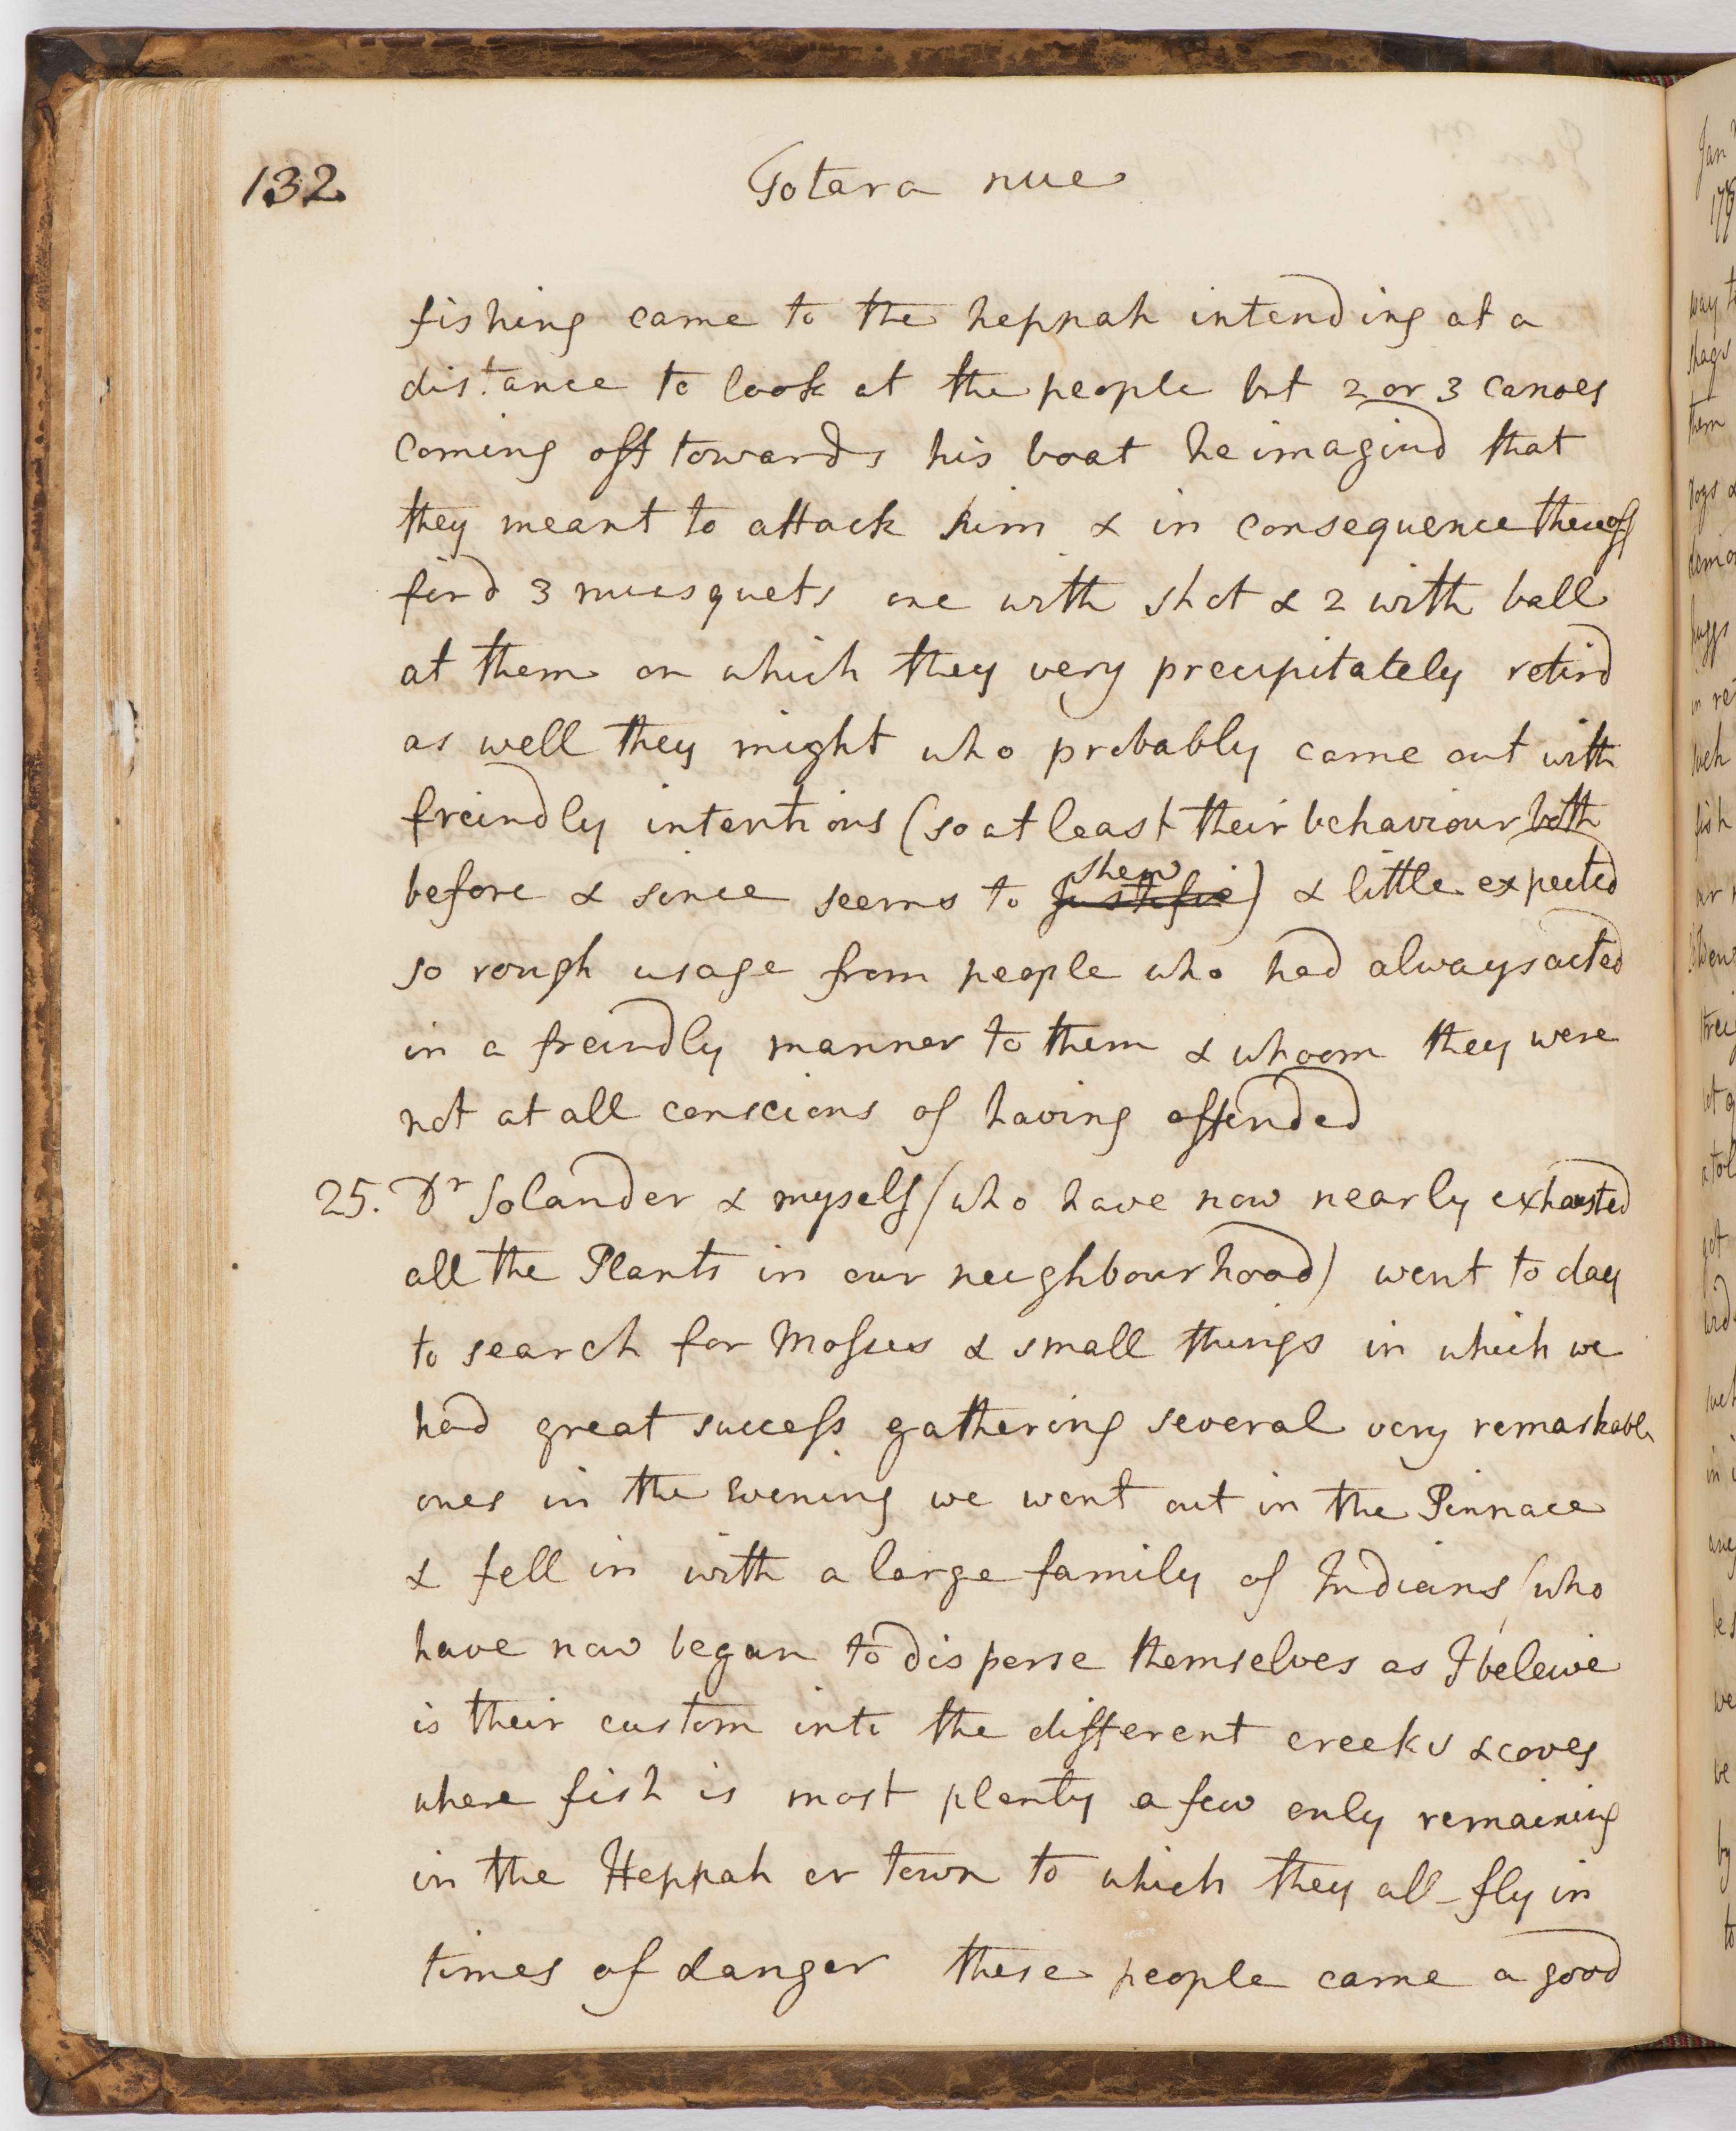 132
Totara nue
fishing came to the heppah intending at a
distance to look at the people but 2 or 3 canoes
coming off towards his boat he imagind that
they meant to attack him & in consequence thereof
fird 3 musquets one with shot & 2 with ball
at them on which they very precipitately retird
as well they might who probably came out with
freindly intentions (so at least their behaviour both
before & since seems to shew justifie) & little expected
so rough usage from people who had always acted
in a freindly manner to them & whoom they were
not at all conscious of having offended
25. Dr Solander & myself (who have now nearly exhausted
all the Plants in our neighbourhood) went to day
to search for Mosses & small things in which we
had great success gathering several very remarkable
ones in the Evening we went out in the Pinnace
& fell in with a large family of Indians (who
have now began to disperse themselves as I beleive
is their custom into the different creeks & coves
where fish is most plenty a few only remaining
in the Heppah or town to which they all fly in
times of danger these people came a good